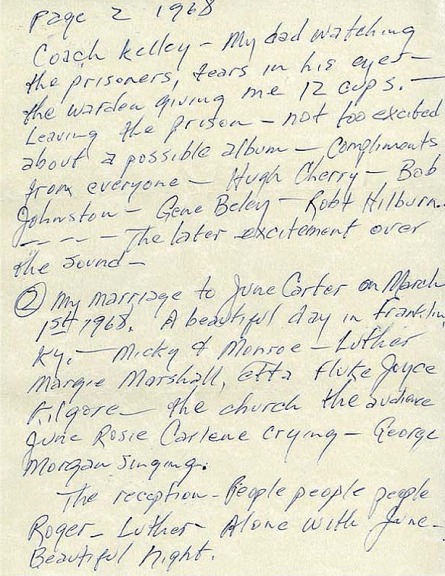 page 2 1968
Coach Kelley - My dad watching
the prisoners, tears in his eyes -
the warden giving me 12 cups. -
Leaving the prison - not too excited
about a possible album - Compliments
from everyone - Hugh Cherry - Bob
Johnston - Gene Beley - Robt Hilburn.
- - - - The later excitement over
the sound -
② My marriage to June Carter on March
1st 1968. A beautiful day in Franklin
Ky. - Micky & Monroe - Luther
Margie Marshall, Etta Fluke Joyce
Kilgore - the church the audience
June Rosie Carlene crying - George
Morgan singing.
The reception - People people people
Roger - Luther - Alone with June -
Beautiful night.